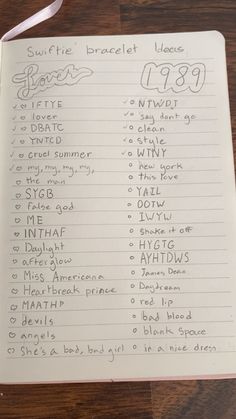 Swiftie bracelet Ideas
Lover
IFTYE
lover
DBATC
YNTCD
cruel summer
my, my, my, my,
the man
SYGB
false god
ME
INTHAF
Daylight
afterglow
Miss Americana
Heartbreak prince
MAATHP
devils
angels
She's a bad, bad girl
1989
NTWDJ
say dont go
clean
style
WTNY
new york
this love
YAIL
OOTW
IWYW
shake it off
HYGTG
AYHTDWS
James Dean
Daydream
red lip
bad blood
blank space
in a nice dress